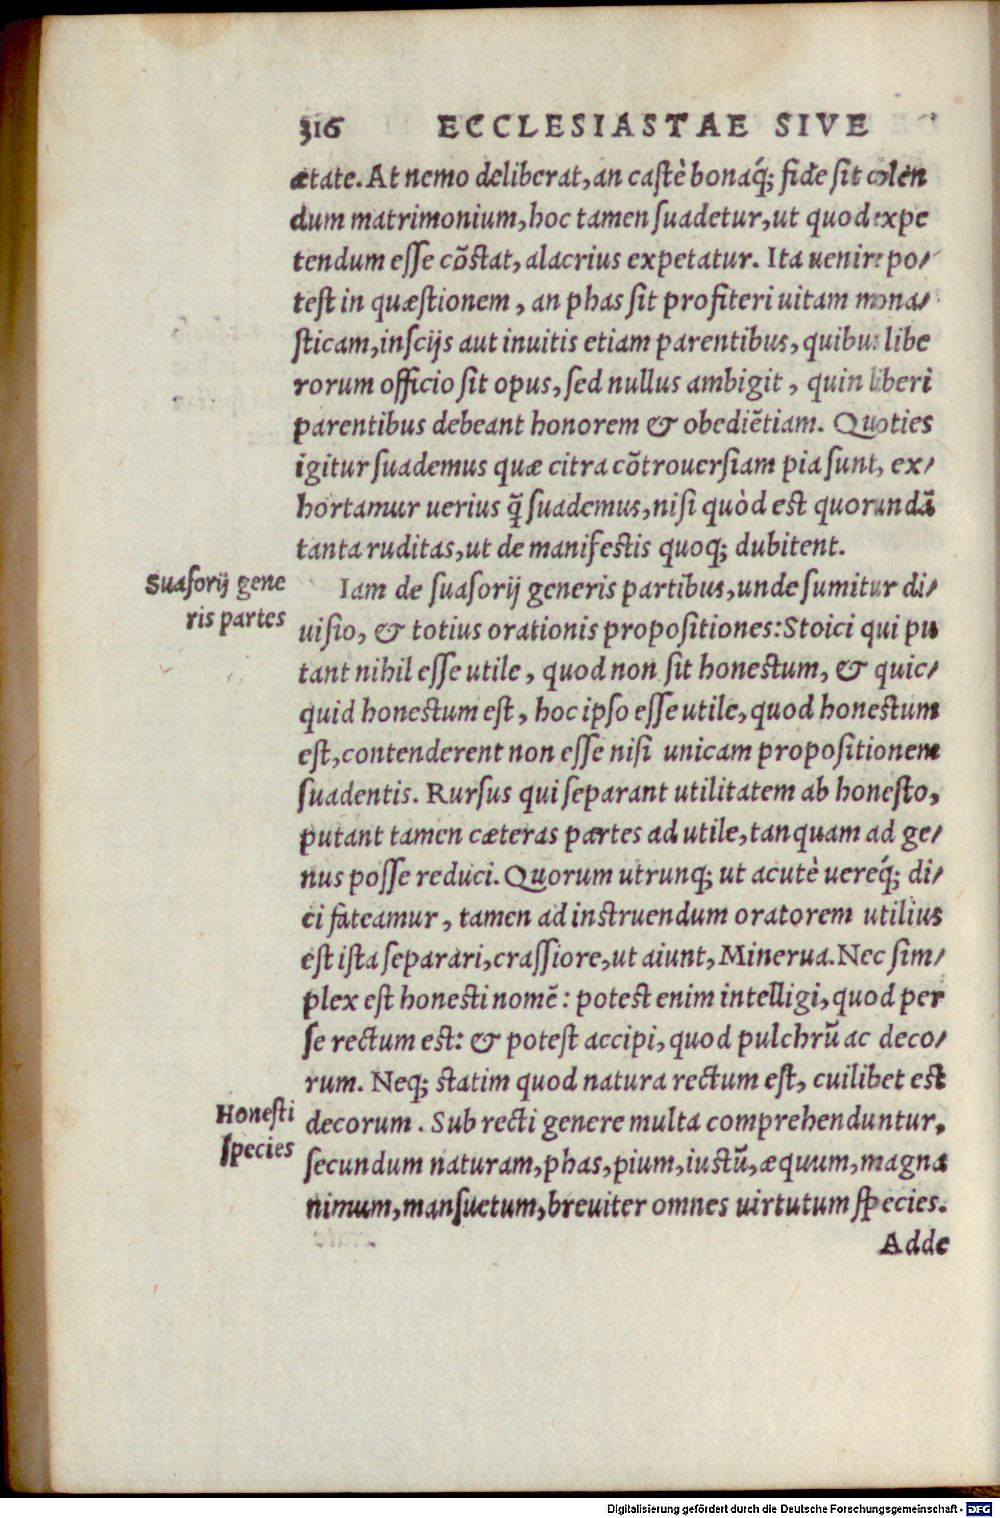 316 ECCLESIASTAE SIVE
ætate. At nemo deliberat, an castè bonaq́; fide sit colen
dum matrimonium, hoc tamen suadetur, ut quod expe
tendum esse cõstat, alacrius expetatur. Ita uenire po/
test in quæstionem, an phas sit profiteri uitam mona/
sticam, inscijs aut inuitis etiam parentibus, quibus libe
rorum officio sit opus, sed nullus ambigit, quin liberi
parentibus debeant honorem & obediẽtiam. Quoties
igitur suademus quæ citra cõtrouersiam pia sunt, ex/
hortamur uerius q̃ suademus, nisi quòd est quorundã
tanta ruditas, ut de manifestis quoq; dubitent.
Suasorij gene
ris partes
Iam de suasorij generis partibus, unde sumitur di/
uisio, & totius orationis propositiones: Stoici qui pu
tant nihil esse utile, quod non sit honestum, & quic/
quid honestum est, hoc ipso esse utile, quod honestum
est, contenderent non esse nisi unicam propositionem
suadentis. Rursus qui separant utilitatem ab honesto,
putant tamen cæteras partes ad utile, tanquam ad ge/
nus posse reduci. Quorum utrunq; ut acutè uereq́; di/
ci fateamur, tamen ad instruendum oratorem utilius
est ista separari, crassiore, ut aiunt, Minerua. Nec sim/
plex est honesti nomẽ: potest enim intelligi, quod per
se rectum est: & potest accipi, quod pulchrũ ac deco/
rum. Neq; statim quod natura rectum est, cuilibet est
Honesti
species
decorum. Sub recti genere multa comprehenduntur,
secundum naturam, phas, pium, iustũ, æquum, magna
nimum, mansuetum, breuiter omnes uirtutum species.
Adde
Digitalisierung gefördert durch die Deutsche Forschungsgemeinschaft - DFG